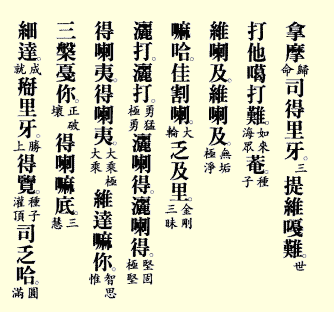 拿摩歸命司得里牙。三提維嘎難。世
打他噶打難。如來海眾菴。種子
維喇及。維喇及。無垢極淨
嘛哈佳割喇。大輪乏及里。金剛三昧
灑打。灑打。勇猛極勇灑喇得。灑喇得。堅固極堅
得喇夷。得喇夷。大乘極大乘維達嘛你。智思惟
三槃戛你。正破壞得喇嘛底。三慧
細達。成就搿里牙。勝上得覽。種子灌頂司乏哈。圓滿